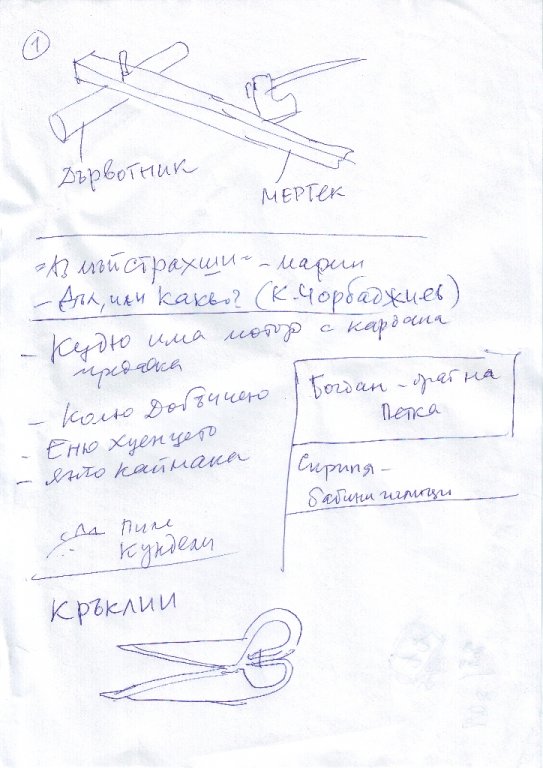 1
Дърwотник
мертек
"Аз мъйстрахши" - марин
- Дъл, или какво? (К. Чорбаджиев)
- Кудю има мотор с карбана
предавка
- Колю Добъчнею
- Еню хуенцето
- янто каймака
Богдан - брат на
Петка
Скрипя -
бабини
Пили
Кундели
КРЪКЛИИ